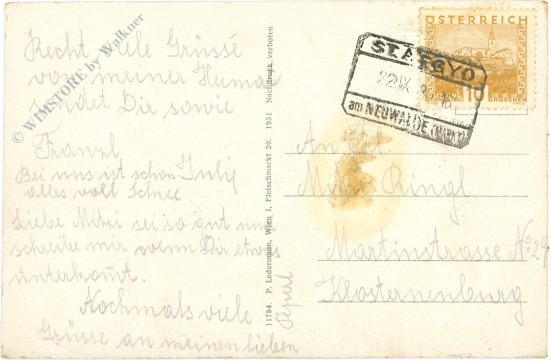 Recht viele Grüsse
von meiner Heimat
sendet Dir sowie
Franzl
Bei uns ist schön
alles voll Schnee
Liebe Mitzi sei so gut und
schreibe mir wenn Dir etwas
unterkommt.
Nochmals viele
Grüsse an meinen lieben
Peperl
11784. P. Ledermann, Wien I, Fleischmarkt 20. 1931 Nachdruck verboten
ST. AEGYD
22 IX
am NEUWALDE (MARKT)
ÖSTERREICH
10 GROSCHEN
An
Ringl
Martinstrasse No 29
Klosterneuburg
© WIMSTORE by Walkner